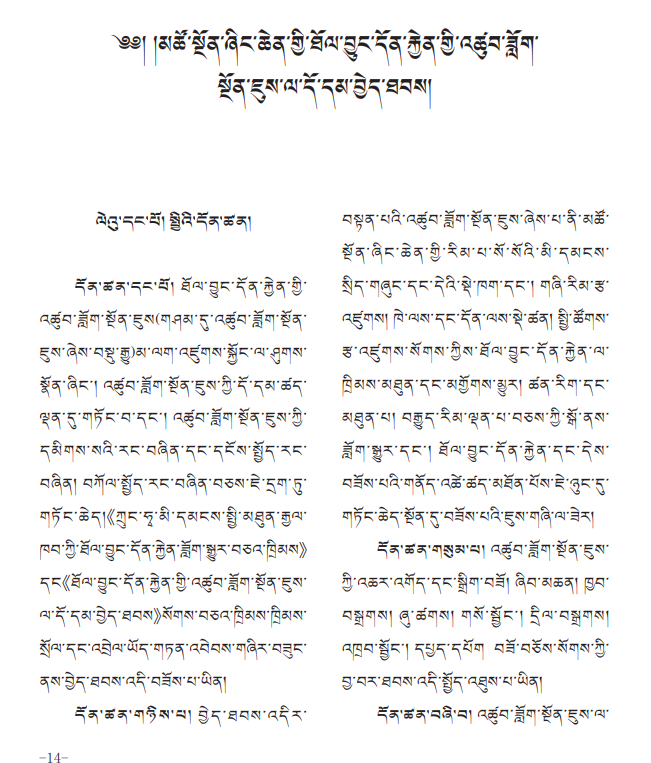 ༄༅། །མཚོ་སྔོན་ཞིང་ཆེན་གྱི་ཐོལ་བྱུང་དོན་རྐྱེན་གྱི་འཚུབ་ཟློག་
སྔོན་ཇུས་ལ་དོ་དམ་བྱེད་ཐབས།
ལེའུ་དང་པོ། སྤྱིའི་དོན་ཚན།
དོན་ཚན་དང་པོ། ཐོལ་བྱུང་དོན་རྐྱེན་གྱི་
འཚུབ་ཟློག་སྔོན་ཇུས(གཤམ་དུ་འཚུབ་ཟློག་སྔོན་
ཇུས་ཞེས་བསྡུ་རྒྱུ)མ་ལག་འཛུགས་སྐྱོང་ལ་ཤུགས་
སྣོན་ཞིང་། འཚུབ་ཟློག་སྔོན་ཇུས་ཀྱི་དོ་དམ་ཚད་
ལྡན་དུ་གཏོང་བ་དང་། འཚུབ་ཟློག་སྔོན་ཇུས་ཀྱི་
དམིགས་སའི་རང་བཞིན་དང་དངོས་སྤྱོད་རང་
བཞིན། བཀོལ་སྤྱོད་རང་བཞིན་བཅས་ཇེ་དྲག་ཏུ་
གཏོང་ཆེད།《ཀྲུང་ཧྭ་མི་དམངས་སྤྱི་མཐུན་རྒྱལ་
ཁབ་ཀྱི་ཐོལ་བྱུང་དོན་རྐྱེན་ཟློག་སྒྱུར་བཅའ་ཁྲིམས》
དང《ཐོལ་བྱུང་དོན་རྐྱེན་གྱི་འཚུབ་ཟློག་སྔོན་ཇུས་
ལ་དོ་དམ་བྱེད་ཐབས》སོགས་བཅའ་ཁྲིམས་ཁྲིམས་
སྲོལ་དང་འབྲེལ་ཡོད་གཏན་འབེབས་གཞིར་བཟུང་
ནས་བྱེད་ཐབས་འདི་བཟོས་པ་ཡིན།
དོན་ཚན་གཉིས་པ། བྱེད་ཐབས་འདིར་
བསྟན་པའི་འཚུབ་ཟློག་སྔོན་ཇུས་ཞེས་པ་ནི་མཚོ་
སྔོན་ཞིང་ཆེན་གྱི་རིམ་པ་སོ་སོའི་མི་དམངས་
སྲིད་གཞུང་དང་དེའི་སྡེ་ཁག་དང་། གཞི་རིམ་རྩ་
འཛུགས། ཁེ་ལས་དང་དོན་ལས་སྡེ་ཚན། སྤྱི་ཚོགས་
རྩ་འཛུགས་སོགས་ཀྱིས་ཐོལ་བྱུང་དོན་རྐྱེན་ལ་
ཁྲིམས་མཐུན་དང་མགྱོགས་མྱུར། ཚན་རིག་དང་
མཐུན་པ། བརྒྱུད་རིམ་ལྡན་པ་བཅས་ཀྱི་སྒོ་ནས་
ཟློག་སྒྱུར་དང་། ཐོལ་བྱུང་དོན་རྐྱེན་དང་དེས་
བཟོས་པའི་གནོད་འཚེ་ཚད་མཐོན་པོས་ཇེ་ཉུང་དུ་
གཏོང་ཆེད་སྔོན་དུ་བཟོས་པའི་ཇུས་གཞི་ལ་ཟེར།
དོན་ཚན་གསུམ་པ། འཚུབ་ཟློག་སྔོན་ཇུས་
ཀྱི་འཆར་འགོད་དང་སྒྲིག་བཟོ། ཞིབ་མཆན། ཁྱབ་
བསྒྲགས། ཞུ་ཚགས། གསོ་སྦྱོང་། དྲིལ་བསྒྲགས།
འཁྲབ་སྦྱོང་། དཔྱད་དཔོག བཟོ་བཅོས་སོགས་ཀྱི་
བྱ་བར་ཐབས་འདི་སྤྱོད་འཐུས་པ་ཡིན།
དོན་ཚན་བཞི་བ། འཚུབ་ཟློག་སྔོན་ཇུས་ལ་
-14-